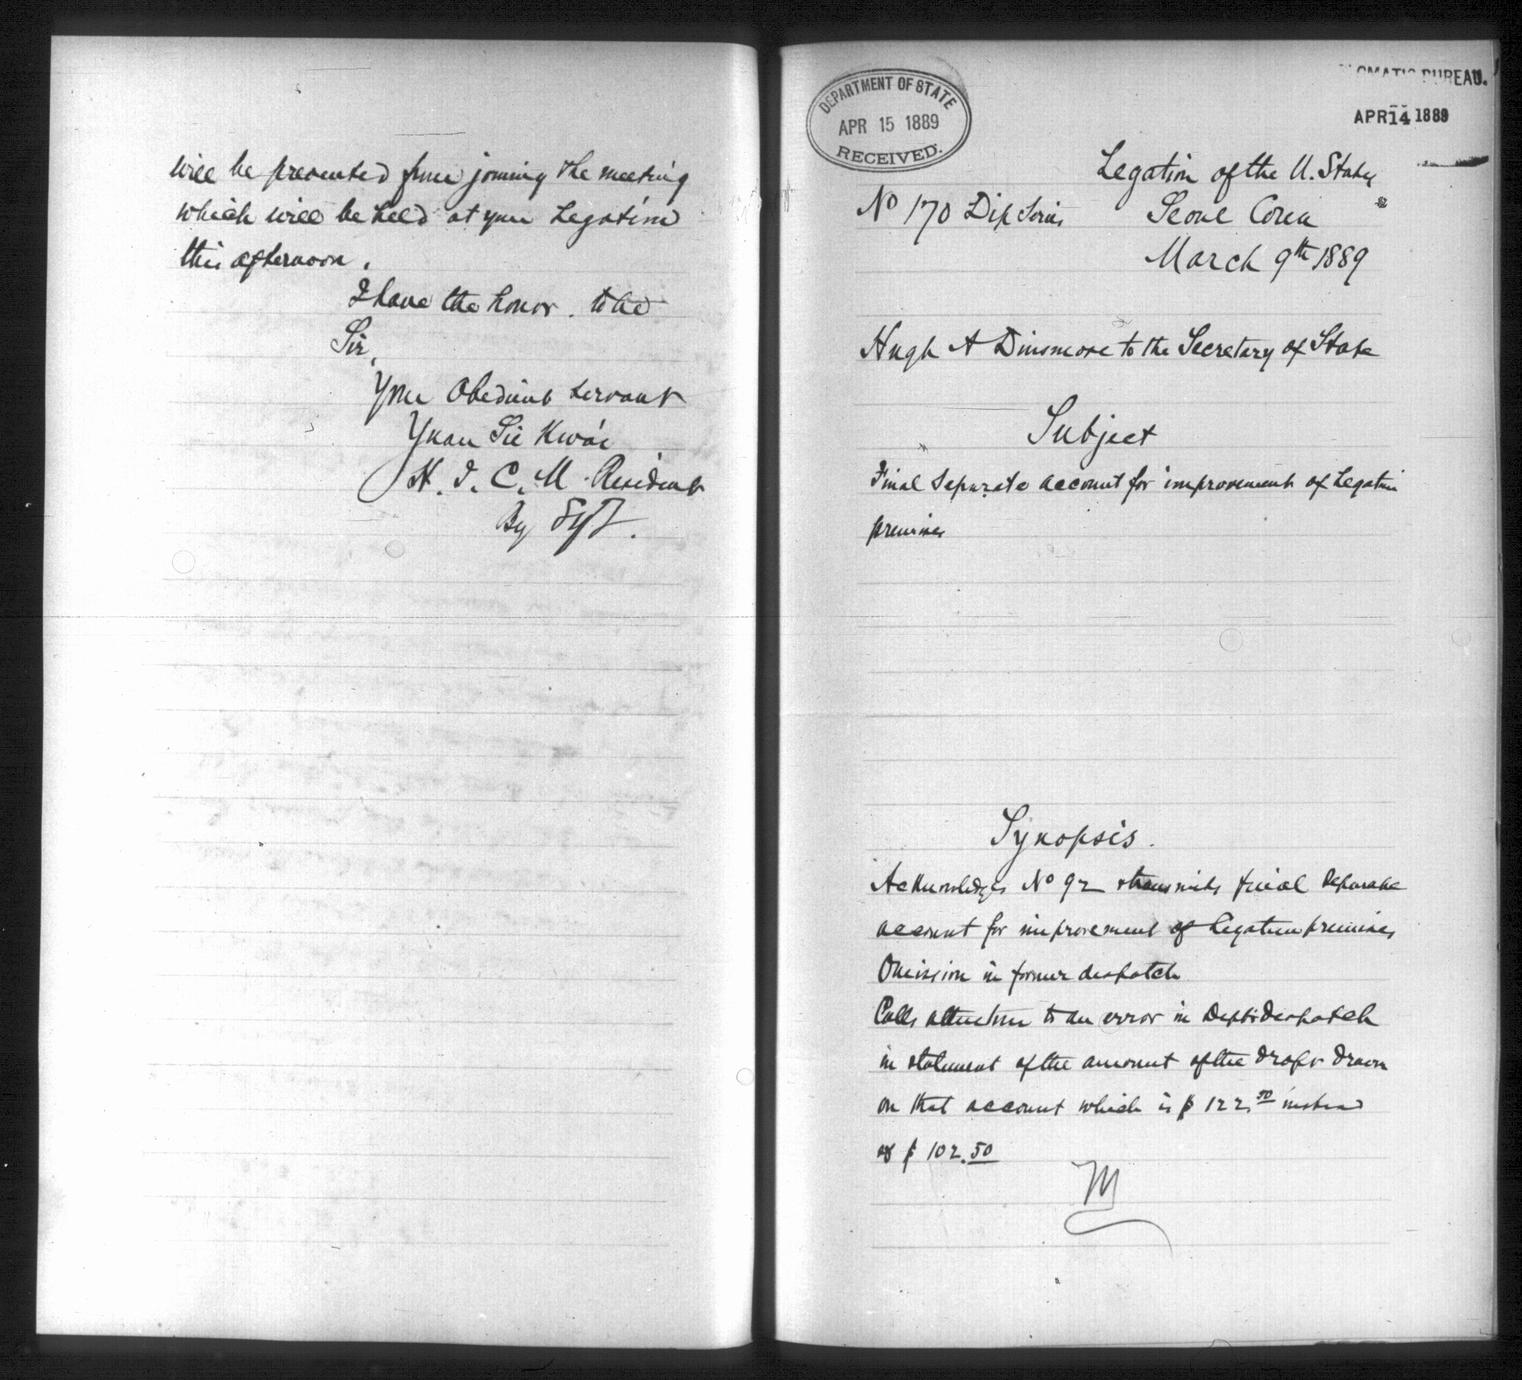 will be prevented from joining the meeting
which will be held at your Legation
this afternoon.
I have the honor. to be
Sir,
Your Obedient servant
Yuan Sie Kwai
H. I. C. M. Resident
By
DEPARTMENT OF STATE
APR 15 1889
RECEIVED.
BUREAU.
APR 14 1889
Legation of the U. States
No 170 Dip Series Seoul Corea
March 9th 1889
Hugh A Dinsmore to the Secretary of State
Subject
Final Separate account for improvement of Legation
premises
Synopsis.
Acknowledges No 92 transmits final separate
account for improvement of Legation premises
Omission in former despatch
Calls attention to an error in Depts despatch
in statement of the amount of the draft drawn
on that account which is $ 122.50 instead
of $ 102.50